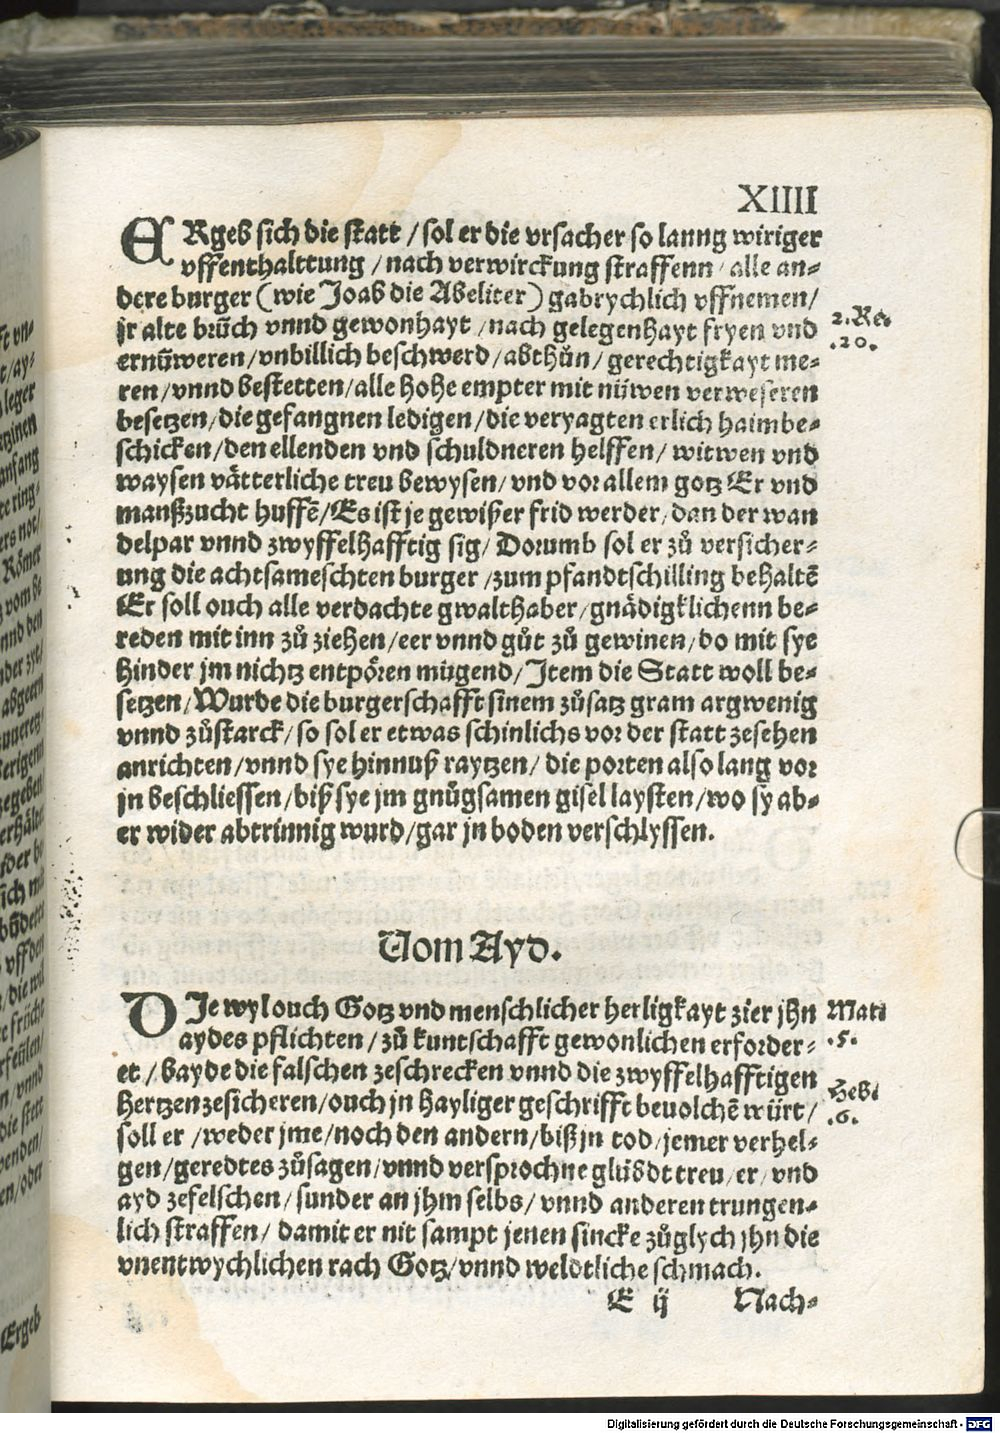 XIIII
ERgeb sich die statt / sol er die vrsacher so lanng wiriger
vffenthalttung / nach verwirckung straffenn / alle an⸗
dere burger (wie Joab die Abeliter) gabrychlich vffnemen /
jr alte brüch vnnd gewonhayt / nach gelegenhayt fryen vnd
2. Re.
.20.
ernüweren / vnbillich beschwerd / abthůn / gerechtigkayt me⸗
ren / vnnd bestetten / alle hohe empter mit nüwen verweseren
besetzen / die gefangnen ledigen / die veryagten erlich haimbe⸗
schicken / den ellenden vnd schuldneren helffen / witwen vnd
waysen vätterliche treu bewysen / vnd vor allem gotz Er vnd
manßzucht huffē / Es ist je gewißer frid werder / dan der wan
delpar vnnd zwyffelhafftig sig / Dorumb sol er zů versicher⸗
ung die achtsameschten burger / zum pfandtschilling behaltē
Er soll ouch alle verdachte gwalthaber / gnädigklichenn be⸗
reden mit inn zů ziehen / eer vnnd gůt zů gewinen / do mit sye
hinder jm nichtz entpören mügend / Item die Statt woll be⸗
setzen / Wurde die burgerschafft sinem zůsatz gram argwenig
vnnd zůstarck / so sol er etwas schinlichs vor der statt zesehen
anrichten / vnnd sye hinnuß raytzen / die porten also lang vor
jn beschliessen / biß sye jm gnůgsamen gisel laysten / wo sy ab⸗
er wider abtrinnig wurd / gar jn boden verschlyssen.
Vom Ayd.
DJe wyl ouch Gotz vnd menschlicher herligkayt zier jhn
Matt
aydes pflichten / zů kuntschafft gewonlichen erforder⸗
.5.
et / bayde die falschen zeschrecken vnnd die zwyffelhafftigen
Heb.
hertzen zesicheren / ouch jn hayliger geschrifft beuolchē würt /
.6.
soll er / weder jme / noch den andern / biß jn tod / jemer verhel⸗
gen / geredtes zůsagen / vnnd versprochne glübdt treu / er / vnd
ayd zefelschen / sunder an jhm selbs / vnnd anderen trungen⸗
lich straffen / damit er nit sampt jenen sincke zůglych jhn die
vnentwychlichen rach Gotz / vnnd weldtliche schmach.
E ij Nach⸗
Ergeb
Digitalisierung gefördert durch die Deutsche Forschungsgemeinschaft - DFG